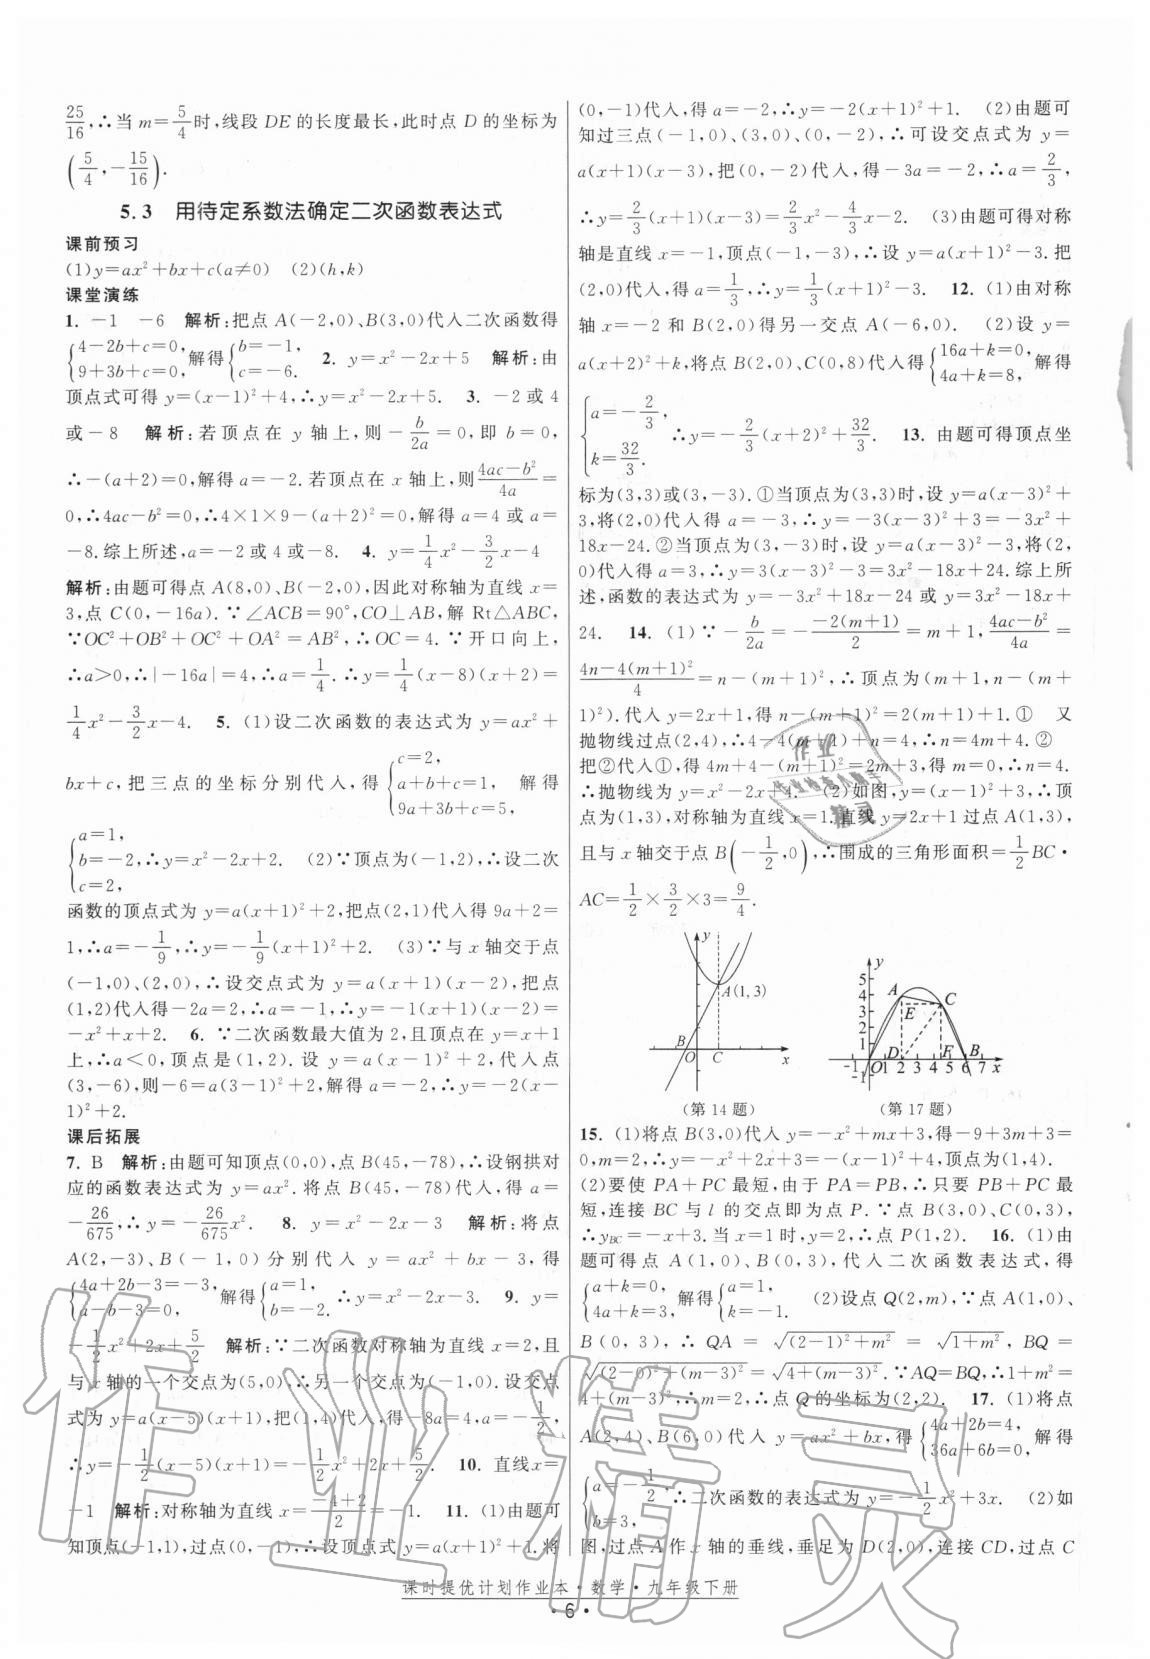 25/16,∴当 m=5/4时,线段 DE 的长度最长,此时点 D 的坐标为
(5/4,-15/16).
5.3 用待定系数法确定二次函数表达式
课前预习
(1)y=ax²+bx+c(a≠0) (2)(h,k)
课堂演练
1. -1 -6 解析:把点 A(-2,0)、B(3,0)代入二次函数得
{4-2b+c=0, 9+3b+c=0, 解得{b=-1, c=-6. 2. y=x²-2x+5 解析:由
顶点式可得 y=(x-1)²+4,∴y=x²-2x+5. 3. -2或4
或-8 解析:若顶点在 y 轴上,则-b/2a=0,即 b=0,
∴-(a+2)=0,解得 a=-2.若顶点在 x 轴上,则(4ac-b²)/4a=
0,∴4ac-b²=0,∴4×1×9-(a+2)²=0,解得 a=4 或 a=
-8.综上所述,a=-2或4或-8. 4. y=1/4x²-3/2x-4
解析:由题可得点 A(8,0)、B(-2,0),因此对称轴为直线 x=
3,点 C(0,-16a).∵∠ACB=90°,CO⊥AB,解 Rt△ABC,
∵OC²+OB²+OC²+OA²=AB²,∴OC=4.∵开口向上,
∴a>0,∴|-16a|=4,∴a=1/4.∴y=1/4(x-8)(x+2)=
1/4x²-3/2x-4. 5. (1)设二次函数的表达式为 y=ax²+
bx+c,把三点的坐标分别代入,得{c=2, a+b+c=1, 9a+3b+c=5, 解得
{a=1, b=-2, c=2, ∴y=x²-2x+2. (2)∵顶点为(-1,2),∴设二次
函数的顶点式为 y=a(x+1)²+2,把点(2,1)代入得 9a+2=
1,∴a=-1/9,∴y=-1/9(x+1)²+2. (3)∵与 x 轴交于点
(-1,0)、(2,0),∴设交点式为 y=a(x+1)(x-2),把点
(1,2)代入得-2a=2,∴a=-1,∴y=-1(x+1)(x-2)=
-x²+x+2. 6. ∵二次函数最大值为 2,且顶点在 y=x+1
上,∴a<0,顶点是(1,2).设 y=a(x-1)²+2,代入点
(3,-6),则-6=a(3-1)²+2,解得 a=-2,∴y=-2(x-
1)²+2.
课后拓展
7. B 解析:由题可知顶点(0,0),点 B(45,-78),∴设钢拱对
应的函数表达式为 y=ax².将点 B(45,-78)代入,得 a=
-26/675,∴y=-26/675x². 8. y=x²-2x-3 解析:将点
A(2,-3)、B(-1,0)分别代入 y=ax²+bx-3,得
{4a+2b-3=-3, a-b-3=0, 解得{a=1, b=-2. ∴y=x²-2x-3. 9. y=
-1/2x²+2x+5/2 解析:∵二次函数对称轴为直线 x=2,且
与 x 轴的一个交点为(5,0),∴另一个交点为(-1,0).设交点
式为 y=a(x-5)(x+1),把(1,4)代入,得-8a=4,a=-1/2,
∴y=-1/2(x-5)(x+1)=-1/2x²+2x+5/2. 10. 直线x=
-1 解析:对称轴为直线 x=(-4+2)/2=-1. 11. (1)由题可
知顶点(-1,1),过点(0,-1),∴设顶点式 y=a(x+1)²+1.将
(0,-1)代入,得 a=-2,∴y=-2(x+1)²+1. (2)由题可
知过三点(-1,0)、(3,0)、(0,-2),∴可设交点式为 y=
a(x+1)(x-3),把(0,-2)代入,得-3a=-2,∴a=2/3,
∴y=2/3(x+1)(x-3)=2/3x²-4/3x-2. (3)由题可得对称
轴是直线 x=-1,顶点(-1,-3),∴设 y=a(x+1)²-3.把
(2,0)代入,得 a=1/3,∴y=1/3(x+1)²-3. 12. (1)由对称
轴 x=-2 和 B(2,0)得另一交点 A(-6,0). (2)设 y=
a(x+2)²+k,将点 B(2,0)、C(0,8)代入得{16a+k=0, 4a+k=8, 解得
{a=-2/3, k=32/3. ∴y=-2/3(x+2)²+32/3. 13. 由题可得顶点坐
标为(3,3)或(3,-3).①当顶点为(3,3)时,设 y=a(x-3)²+
3,将(2,0)代入得 a=-3,∴y=-3(x-3)²+3=-3x²+
18x-24.②当顶点为(3,-3)时,设 y=a(x-3)²-3,将(2,
0)代入得 a=3,∴y=3(x-3)²-3=3x²-18x+24.综上所
述,函数的表达式为 y=-3x²+18x-24 或 y=3x²-18x+
24. 14. (1)∵-b/2a=-(-2(m+1))/2=m+1,(4ac-b²)/4a=
(4n-4(m+1)²)/4=n-(m+1)²,∴顶点为(m+1,n-(m+
1)²).代入 y=2x+1,得 n-(m+1)²=2(m+1)+1.① 又
抛物线过点(2,4),∴4-4(m+1)+n=4,∴n=4m+4.②
把②代入①,得 4m+4-(m+1)²=2m+3,得 m=0,∴n=4.
∴抛物线为 y=x²-2x+4. (2)如图,y=(x-1)²+3,∴顶
点为(1,3),对称轴为直线 x=1.直线 y=2x+1 过点 A(1,3),
且与 x 轴交于点 B(-1/2,0),∴围成的三角形面积=1/2BC·
AC=1/2×3/2×3=9/4.
y A(1,3) B O C x
(第14题)
y 5 4 3 2 1 A C E D F B O 1 2 3 4 5 6 7 x -1 -1
(第17题)
15. (1)将点 B(3,0)代入 y=-x²+mx+3,得-9+3m+3=
0,m=2,∴y=-x²+2x+3=-(x-1)²+4,顶点为(1,4).
(2)要使 PA+PC 最短,由于 PA=PB,∴只要 PB+PC 最
短,连接 BC 与 l 的交点即为点 P.∵点 B(3,0)、C(0,3),
∴y_BC=-x+3.当 x=1 时,y=2,∴点 P(1,2). 16. (1)由
题可得点 A(1,0)、B(0,3),代入二次函数表达式,得
{a+k=0, 4a+k=3, 解得{a=1, k=-1. (2)设点 Q(2,m),∵点 A(1,0)、
B(0,3),∴QA=√((2-1)²+m²)=√(1+m²),BQ=
√((2-0)²+(m-3)²)=√(4+(m-3)²).∵AQ=BQ,∴1+m²=
4+(m-3)²,∴m=2,∴点 Q 的坐标为(2,2). 17. (1)将点
A(2,4)、B(6,0)代入 y=ax²+bx,得{4a+2b=4, 36a+6b=0, 解得
{a=-1/2, b=3, ∴二次函数的表达式为 y=-1/2x²+3x. (2)如
图,过点 A 作 x 轴的垂线,垂足为 D(2,0),连接 CD,过点 C
课时提优计划作业本·数学·九年级下册
·6·
作业精灵